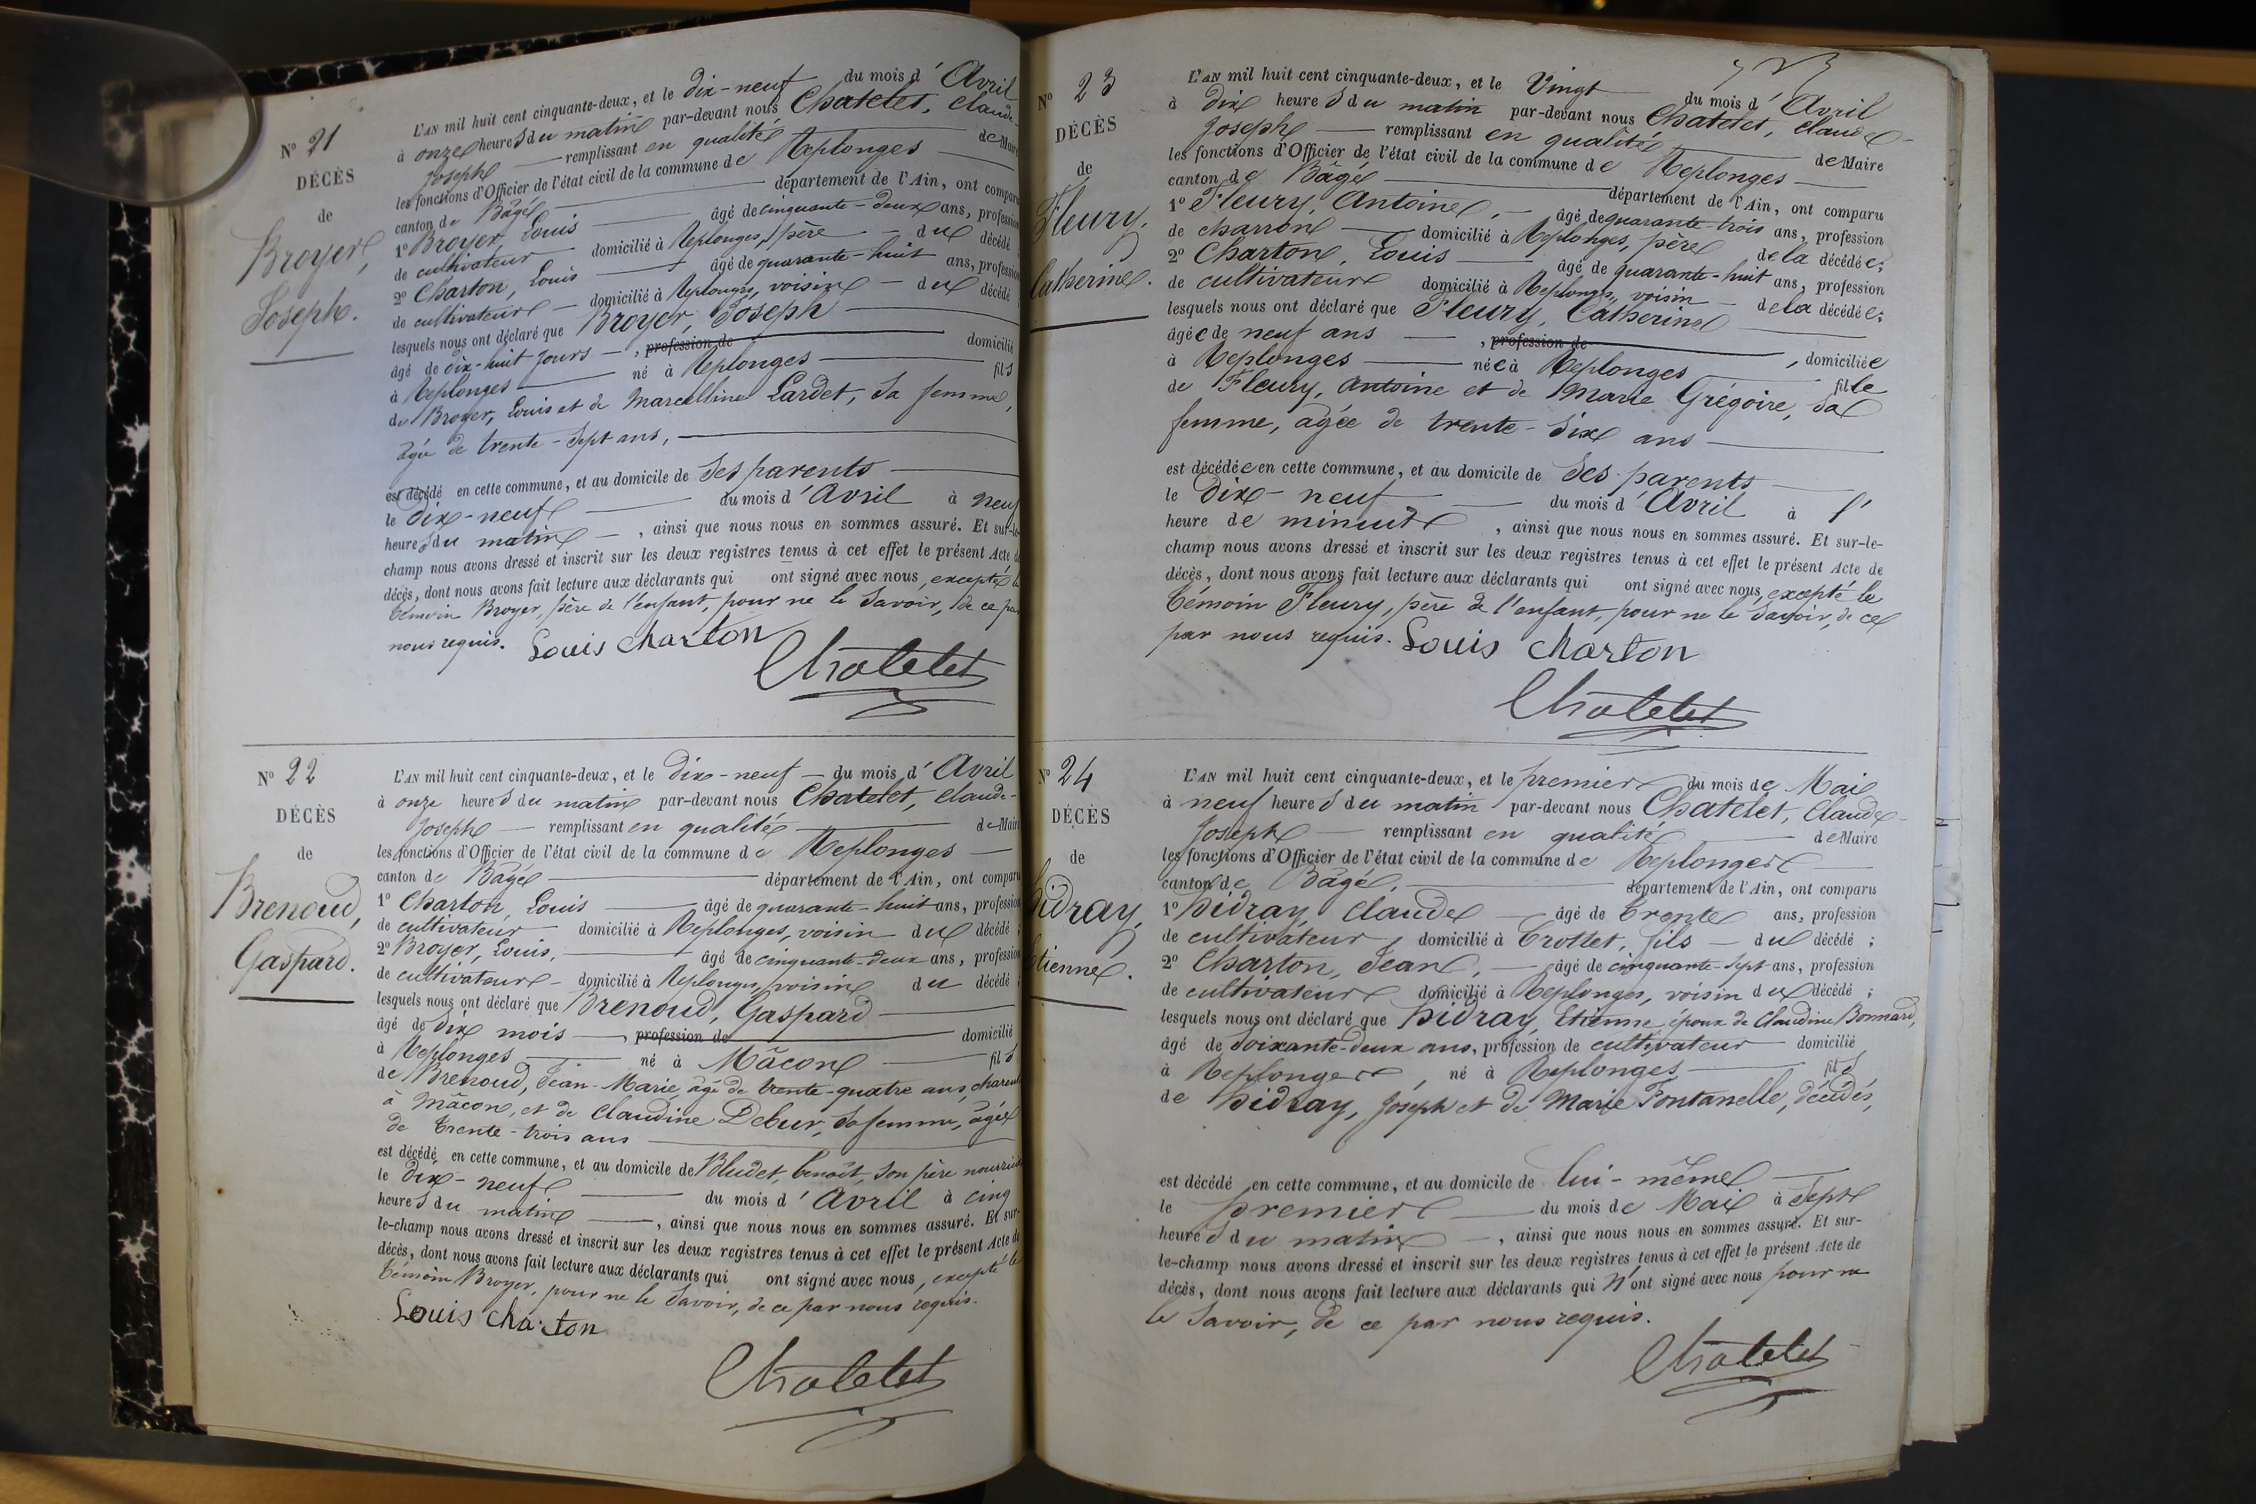 N° 21
DÉCÈS
de
Broyer,
Joseph.
L'AN mil huit cent cinquante-deux, et le dix-neuf du mois d'Avril
à onze heures du matin par-devant nous Chatelet, Claude-
Joseph remplissant en qualité de Maire
les fonctions d'Officier de l'état civil de la commune de Replonges
canton de Bâgé département de l'Ain, ont comparu
1° Broyer, Louis âgé de cinquante-deux ans, profession
de cultivateur domicilié à Replonges, père du décédé
2° Charton, Louis âgé de quarante-huit ans, profession
de cultivateur domicilié à Replonges, voisin du décédé
lesquels nous ont déclaré que Broyer, Joseph
âgé de dix-huit jours, profession de domicilié
à Replonges né à Replonges fils
de Broyer, Louis et de Marcelline Lardet, sa femme,
âgée de trente-sept ans,
est décédé en cette commune, et au domicile de ses parents
le dix-neuf du mois d'Avril à neuf
heures du matin, ainsi que nous nous en sommes assuré. Et sur-le-
champ nous avons dressé et inscrit sur les deux registres tenus à cet effet le présent Acte de
décès, dont nous avons fait lecture aux déclarants qui ont signé avec nous, excepté le
témoin Broyer, père de l'enfant, pour ne le savoir, de ce par
nous requis. Louis charton
Chatelet
N° 22
DÉCÈS
de
Brenoud,
Gaspard.
L'AN mil huit cent cinquante-deux, et le dix-neuf du mois d'Avril
à onze heures du matin par-devant nous Chatelet, Claude-
Joseph remplissant en qualité de Maire
les fonctions d'Officier de l'état civil de la commune de Replonges
canton de Bâgé département de l'Ain, ont comparu
1° Charton, Louis âgé de quarante-huit ans, profession
de cultivateur domicilié à Replonges, voisin du décédé ;
2° Broyer, Louis, âgé de cinquante-deux ans, profession
de cultivateur domicilié à Replonges, voisin du décédé ;
lesquels nous ont déclaré que Brenoud, Gaspard
âgé de dix mois, profession de domicilié
à Replonges né à Mâcon fils
de Brenoud, Jean-Marie, âgé de trente-quatre ans,
à Mâcon, et de Claudine Debur, sa femme, âgée
de trente-trois ans
est décédé en cette commune, et au domicile de Bludet, benoît, son père nourricier
le dix-neuf du mois d'Avril à cinq
heures du matin, ainsi que nous nous en sommes assuré. Et sur-
le-champ nous avons dressé et inscrit sur les deux registres tenus à cet effet le présent Acte de
décès, dont nous avons fait lecture aux déclarants qui ont signé avec nous, excepté le
témoin Broyer, pour ne le savoir, de ce par nous requis.
Louis charton
Chatelet
N° 23
DÉCÈS
de
Fleury,
Catherine.
L'AN mil huit cent cinquante-deux, et le Vingt du mois d'Avril
à dix heures du matin par-devant nous Chatelet, Claude-
Joseph remplissant en qualité de Maire
les fonctions d'Officier de l'état civil de la commune de Replonges
canton de Bâgé département de l'Ain, ont comparu
1° Fleury, Antoine, âgé de quarante-trois ans, profession
de charron domicilié à Replonges, père de la décédée ;
2° Charton, Louis âgé de quarante-huit ans, profession
de cultivateur domicilié à Replonges, voisin de la décédée ;
lesquels nous ont déclaré que Fleury, Catherine
âgée de neuf ans, profession de, domiciliée
à Replonges née à Replonges fille
de Fleury, Antoine et de Marie Grégoire, sa
femme, âgée de trente-six ans
est décédée en cette commune, et au domicile de ses parents
le dix-neuf du mois d'Avril à l'
heure de minuit, ainsi que nous nous en sommes assuré. Et sur-le-
champ nous avons dressé et inscrit sur les deux registres tenus à cet effet le présent Acte de
décès, dont nous avons fait lecture aux déclarants qui ont signé avec nous, excepté le
témoin Fleury, père de l'enfant, pour ne le savoir, de ce
par nous requis. Louis charton
Chatelet
N° 24
DÉCÈS
de
hidray,
Etienne.
L'AN mil huit cent cinquante-deux, et le premier du mois de Mai
à neuf heures du matin par-devant nous Chatelet, Claude-
Joseph remplissant en qualité de Maire
les fonctions d'Officier de l'état civil de la commune de Replonges
canton de Bâgé, département de l'Ain, ont comparu
1° hidray, Claude âgé de trente ans, profession
de cultivateur, domicilié à Crottet, fils du décédé ;
2° Charton, Jean, âgé de cinquante-sept ans, profession
de cultivateur domicilié à Replonges, voisin du décédé ;
lesquels nous ont déclaré que hidray, Etienne, époux de Claudine Bonnard,
âgé de soixante-deux ans, profession de cultivateur domicilié
à Replonges, né à Replonges fils
de hidray, Joseph et de Marie Fontanelle, décédés,
est décédé en cette commune, et au domicile de lui-même
le premier du mois de Mai à sept
heures du matin, ainsi que nous nous en sommes assuré. Et sur-
le-champ nous avons dressé et inscrit sur les deux registres tenus à cet effet le présent Acte de
décès, dont nous avons fait lecture aux déclarants qui n'ont signé avec nous pour ne
le savoir, de ce par nous requis.
Chatelet